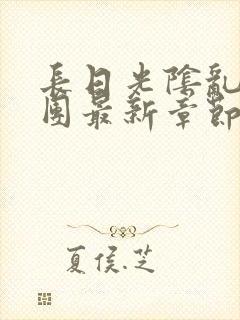 長日光陰亂
團最新章節
夏侯.芝